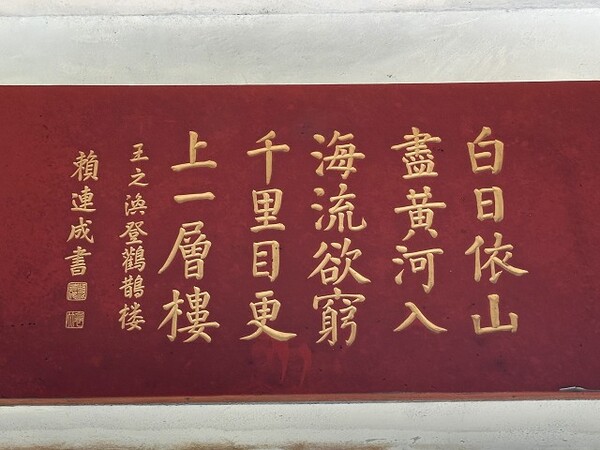 白日依山
盡黃河入
海流欲窮
千里目更
上一層樓
王之渙登鸛鵲楼
賴連成書